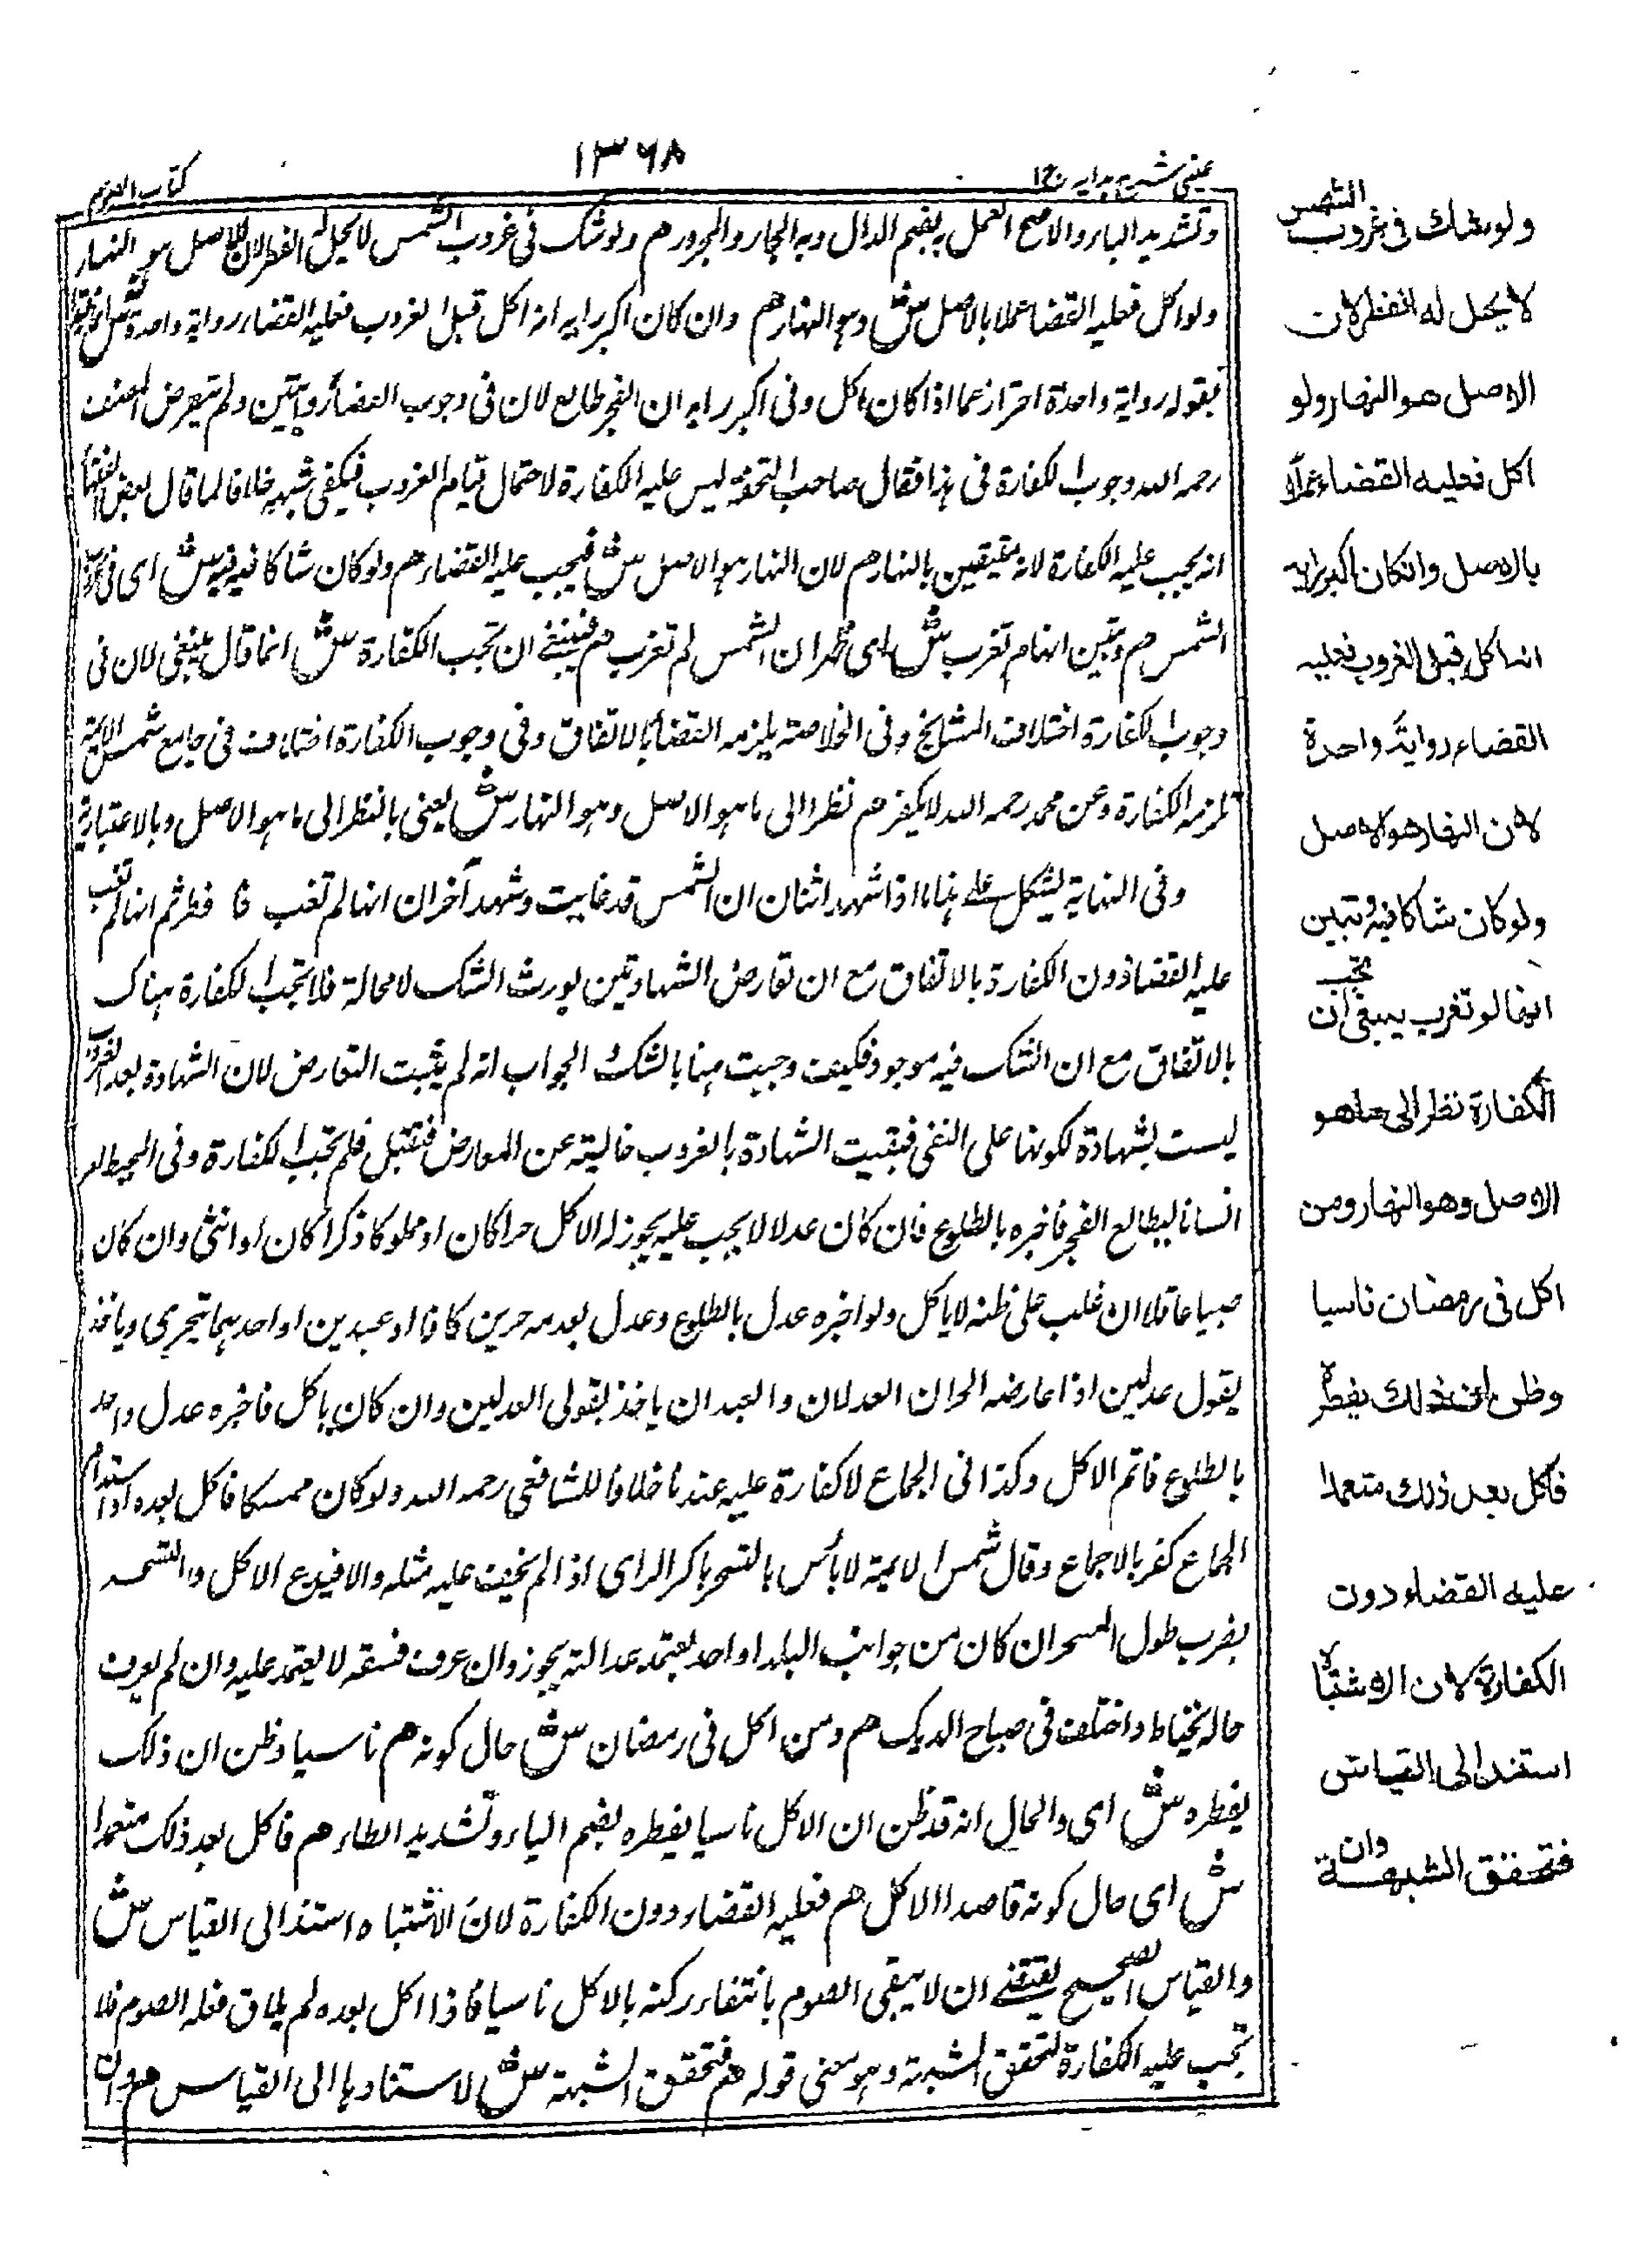 عيني شرح هدايه ج2
١٣٦٨
كتاب الصوم
وتشديد الباء والاصح العمل به بضم الدال وبه الجار والمجرور هم ولو شك في غروب الشمس لا يحل له الفطر لان الاصل هو النهار
ولو اكل فعليه القضاء عملا بالاصل ش وهو النهار هم وان كان اكبر رايه انه اكل قبل الغروب فعليه القضاء رواية واحدة ش
بقوله رواية واحدة احترز عما اذا كان اكل وفى اكبر رايه ان الفجر طالع لان فى وجوب القضاء روايتين ولم يتعرض المصنف
رحمه الله وجوب الكفارة فى هذا فقال صاحب التحفة ليس عليه الكفارة لاحتمال قيام الغروب فيكفى شبهة خلافا لما قال بعض الفقهاء
انه يجب عليه الكفارة لانه متيقين بالنهار هم لان النهار هو الاصل ش فيجب عليه القضاء هم ولو كان شاكا فيه ش اى فى غروب
الشمس هم وتبين انها لم تغرب ش اى ظهر ان الشمس لم تغرب هم فينبغى ان تجب الكفارة ش انما قال ينبغى لان فى
وجوب الكفارة اختلاف المشايخ وفى الخلاصة يلزمه القضاء بالاتفاق وفى وجوب الكفارة اختلاف فى جامع شمس الائمة
تلزمه الكفارة وعن محمد رحمه الله لا يكفر هم نظرا الى ما هو الاصل وهو النهار ش يعنى بالنظر الى ما هو الاصل وبالاعتبار به
وفى النهاية يشكل على هذا ما اذا شهد اثنان ان الشمس قد غابت وشهد آخران انها لم تغب فافطر ثم انها لم تغب
عليه القضاء دون الكفارة بالاتفاق مع ان تعارض الشهادتين يورث الشك لا محالة فلا تجب الكفارة هناك
بالاتفاق مع ان الشك فيه موجود فكيف وجبت هنا بالشك الجواب انه لم يثبت التعارض لان الشهادة بعدم الغروب
ليست بشهادة لكونها على النفى فبقيت الشهادة بالغروب خالية عن المعارض فتقبل فلم تجب الكفارة وفى المحيط امر
انسانا ليطالع الفجر فاخبره بالطلوع فان كان عدلا لا يجب عليه يجوز له الاكل حرا كان او مملوكا ذكرا كان او انثى وان كان
صبيا عاقلا ان غلب على ظنه لا ياكل ولو اخبره عدل بالطلوع وعدل بعدمه حرين كانا او عبدين او احدهما يتحرى وياخذ
يقول عدلين اذا عارضه الحران العدلان والعبدان ياخذ بقولى العدلين وان كان ياكل فاخبره عدل واحد
بالطلوع فاتم الاكل وكذا فى الجماع لا كفارة عليه عندنا خلافا للشافعى رحمه الله ولو كان ممسكا فاكل بعده او استدام
الجماع كفر بالاجماع وقال شمس الايمة لا بأس بالتسحر باكبر الراى اذا لم يخف عليه مثله والا فيدع الاكل والتسحر
بضرب طبول السحر ان كان من جوانب البلد او احد يعتمد عدالته يجوز وان عرف فسقه لا يعتمد عليه وان لم يعرف
حاله يحتاط واختلف فى صياح الديك هم ومن اكل فى رمضان ش حال كونه هم ناسيا وظن ان ذلك
يفطره ش اى والحال انه قد ظن ان الاكل ناسيا يفطره بضم الياء وتشديد الطاء هم فاكل بعد ذلك متعمدا
ش اى حال كونه قاصدا الاكل هم فعليه القضاء دون الكفارة لان الاشتباه استند الى القياس ش
والقياس الصحيح يقتضى ان لا يبقى الصوم بانتفاء ركنه بالاكل ناسيا فاذا اكل بعده لم يلاق فعله الصوم فلا
تجب عليه الكفارة لتحقق الشبهة وهو معنى قوله هم فتحقق الشبهة ش لاستنادها الى القياس هم وان
ولو شك فى غروب الشمس
لا يحل له الفطر لان
الاصل هو النهار ولو
اكل فعليه القضاء عملا
بالاصل وان كان اكبر رايه
انه اكل قبل الغروب فعليه
القضاء رواية واحدة
لان النهار هو الاصل
ولو كان شاكا فيه وتبين
انها لم تغرب ينبغى ان تجب
الكفارة نظرا الى ما هو
الاصل وهو النهار ومن
اكل فى رمضان ناسيا
وظن ان ذلك يفطره
فاكل بعد ذلك متعمدا
عليه القضاء دون
الكفارة لان الاشتباه
استند الى القياس
فتحقق الشبهة وان